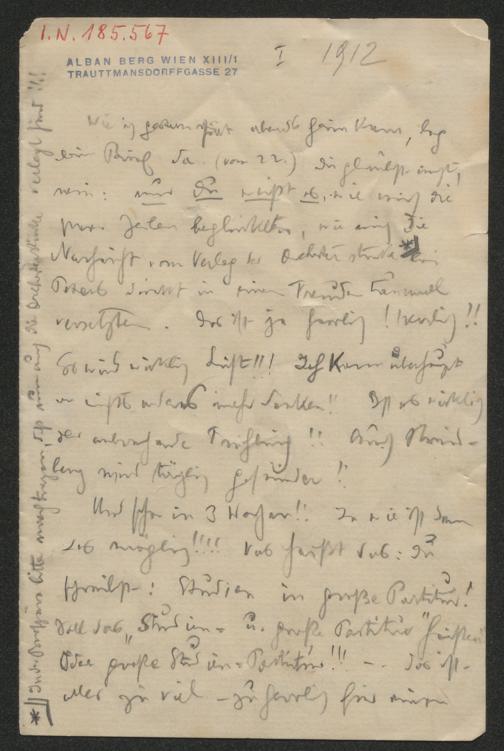 I.N. 185.567
ALBAN BERG WIEN XIII/1
TRAUTTMANSDORFFGASSE 27
I 1912
Wie ich gestern abends heim kam, lag
ein Brief da. (vom 22.) Du glaubst nicht,
nein: nur Du weißt es, wie mich die
paar Zeilen beglückten, wie mich die
Nachricht vom Verlag der Orchesterstücke *
direkt in einen Freuden
versetzten. Das ist ja herrlich! herrlich!!
So wird wirklich Luft!!! Ich kann überhaupt
an nichts anderes mehr denken!! Ist es wirklich
der anbrechende Frühling!! Auch
wird täglich gesünder!!
Und schon in 3 Wochen!! Ja wie ist denn
das möglich!!!! Was heißt das: Du
schreibst: Studien in große Partitur!
Soll das "Studien- u. große Partitur" heißen
Oder große Studien-Partitur!!! -- Das ist
aber zu viel - zu herrlich für einen
* daß nun auch die Orchesterstücke verlegt sind!!!